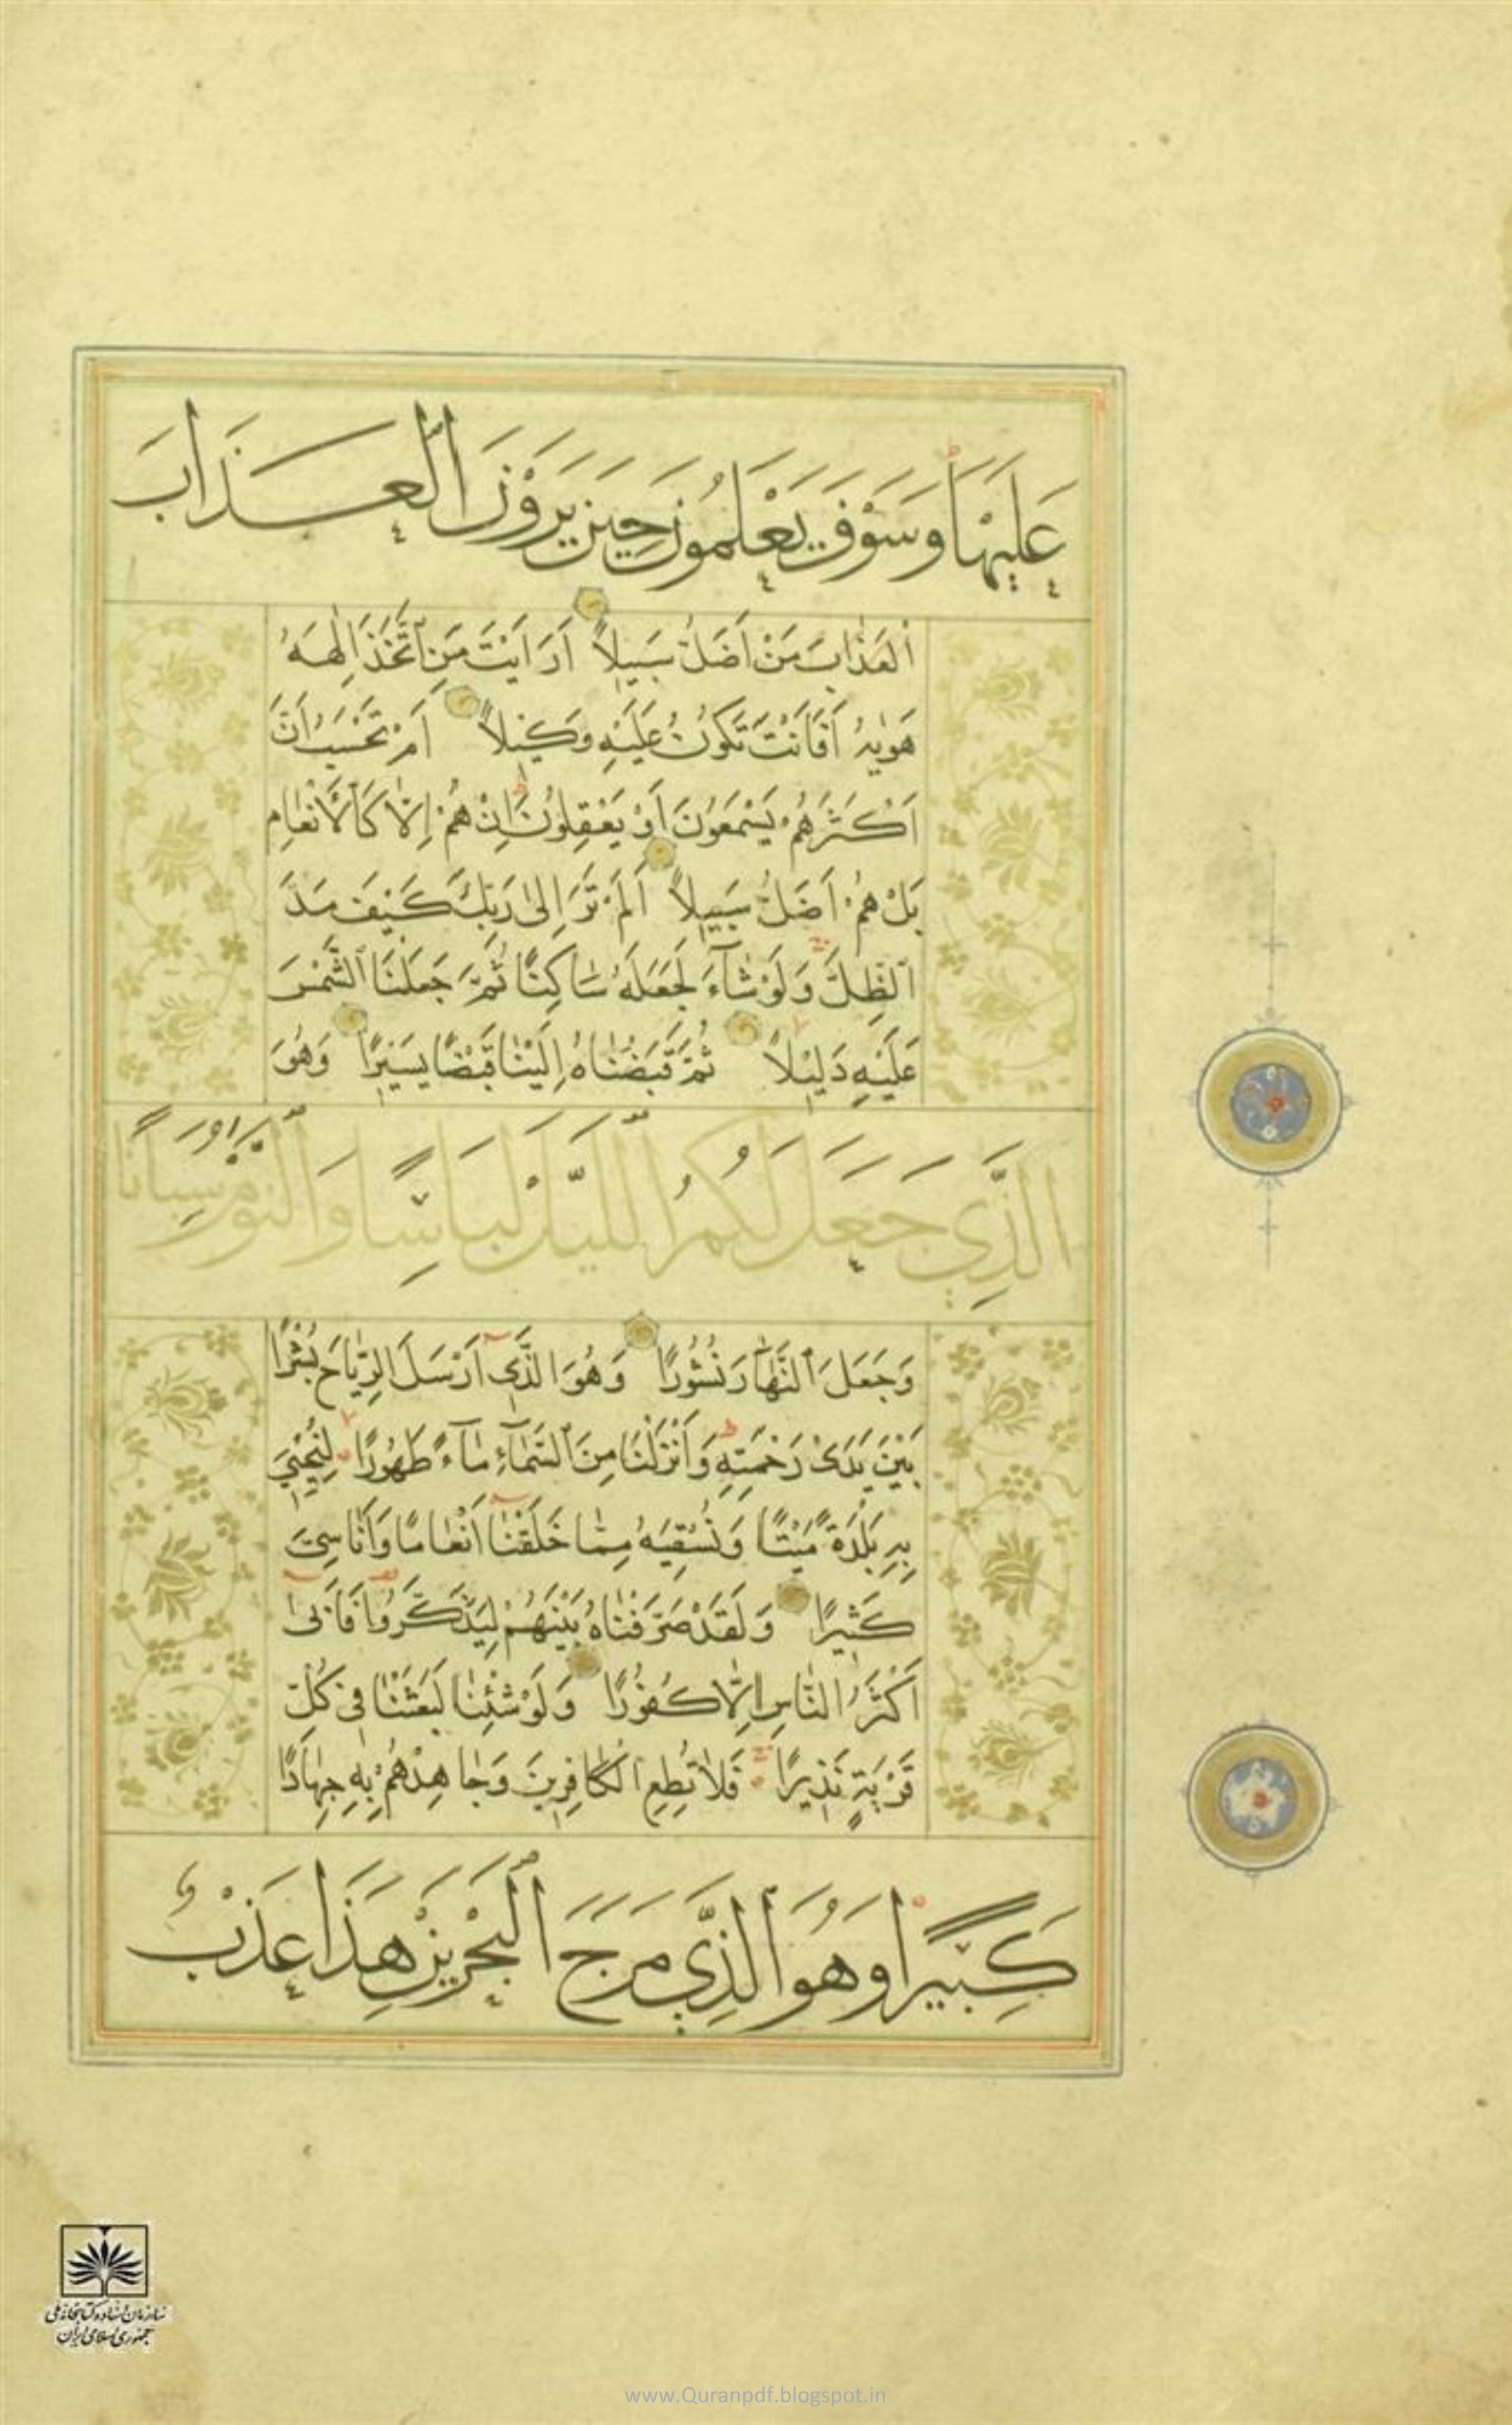 عَلَيْهَا وَسَوْفَ يَعْلَمُونَ حِينَ يَرَوْنَ الْعَذَابَ
الْعَذَابَ مَنْ اَضَلُّ سَبِيلاً اَرَاَيْتَ مَنِ اتَّخَذَ اِلٰهَهُ
هَوٰيهُ اَفَاَنْتَ تَكُونُ عَلَيْهِ وَكِيلاً اَمْ تَحْسَبُ اَنَّ
اَكْثَرَهُمْ يَسْمَعُونَ اَوْ يَعْقِلُونَ اِنْ هُمْ اِلَّا كَالْاَنْعَامِ
بَلْ هُمْ اَضَلُّ سَبِيلاً اَلَمْ تَرَ اِلىٰ رَبِّكَ كَيْفَ مَدَّ
الظِّلَّ وَلَوْ شَآءَ لَجَعَلَهُ سَاكِنًا ثُمَّ جَعَلْنَا الشَّمْسَ
عَلَيْهِ دَلِيلاً ثُمَّ قَبَضْنَاهُ اِلَيْنَا قَبْضًا يَسِيرًا وَهُوَ
الَّذِي جَعَلَ لَكُمُ اللَّيْلَ لِبَاسًا وَالنَّوْمَ سُبَاتًا
وَجَعَلَ النَّهَارَ نُشُورًا وَهُوَ الَّذِي اَرْسَلَ الرِّيَاحَ بُشْرًا
بَيْنَ يَدَىْ رَحْمَتِهِ وَاَنْزَلْنَا مِنَ السَّمَآءِ مَآءً طَهُورًا لِنُحْيِيَ
بِهِ بَلْدَةً مَيْتًا وَنُسْقِيَهُ مِمَّا خَلَقْنَا اَنْعَامًا وَاَنَاسِيَّ
كَثِيرًا وَلَقَدْ صَرَّفْنَاهُ بَيْنَهُمْ لِيَذَّكَّرُوا فَاَبىٰ
اَكْثَرُ النَّاسِ اِلَّا كُفُورًا وَلَوْ شِئْنَا لَبَعَثْنَا فِي كُلِّ
قَرْيَةٍ نَذِيرًا فَلَا تُطِعِ الْكَافِرِينَ وَجَاهِدْهُمْ بِهِ جِهَادًا
كَبِيرًا وَهُوَ الَّذِي مَرَجَ الْبَحْرَيْنِ هَذَا عَذْبٌ
سازمان اسناد و کتابخانه ملی
جمهوری اسلامی ایران
www.Quranpdf.blogspot.in